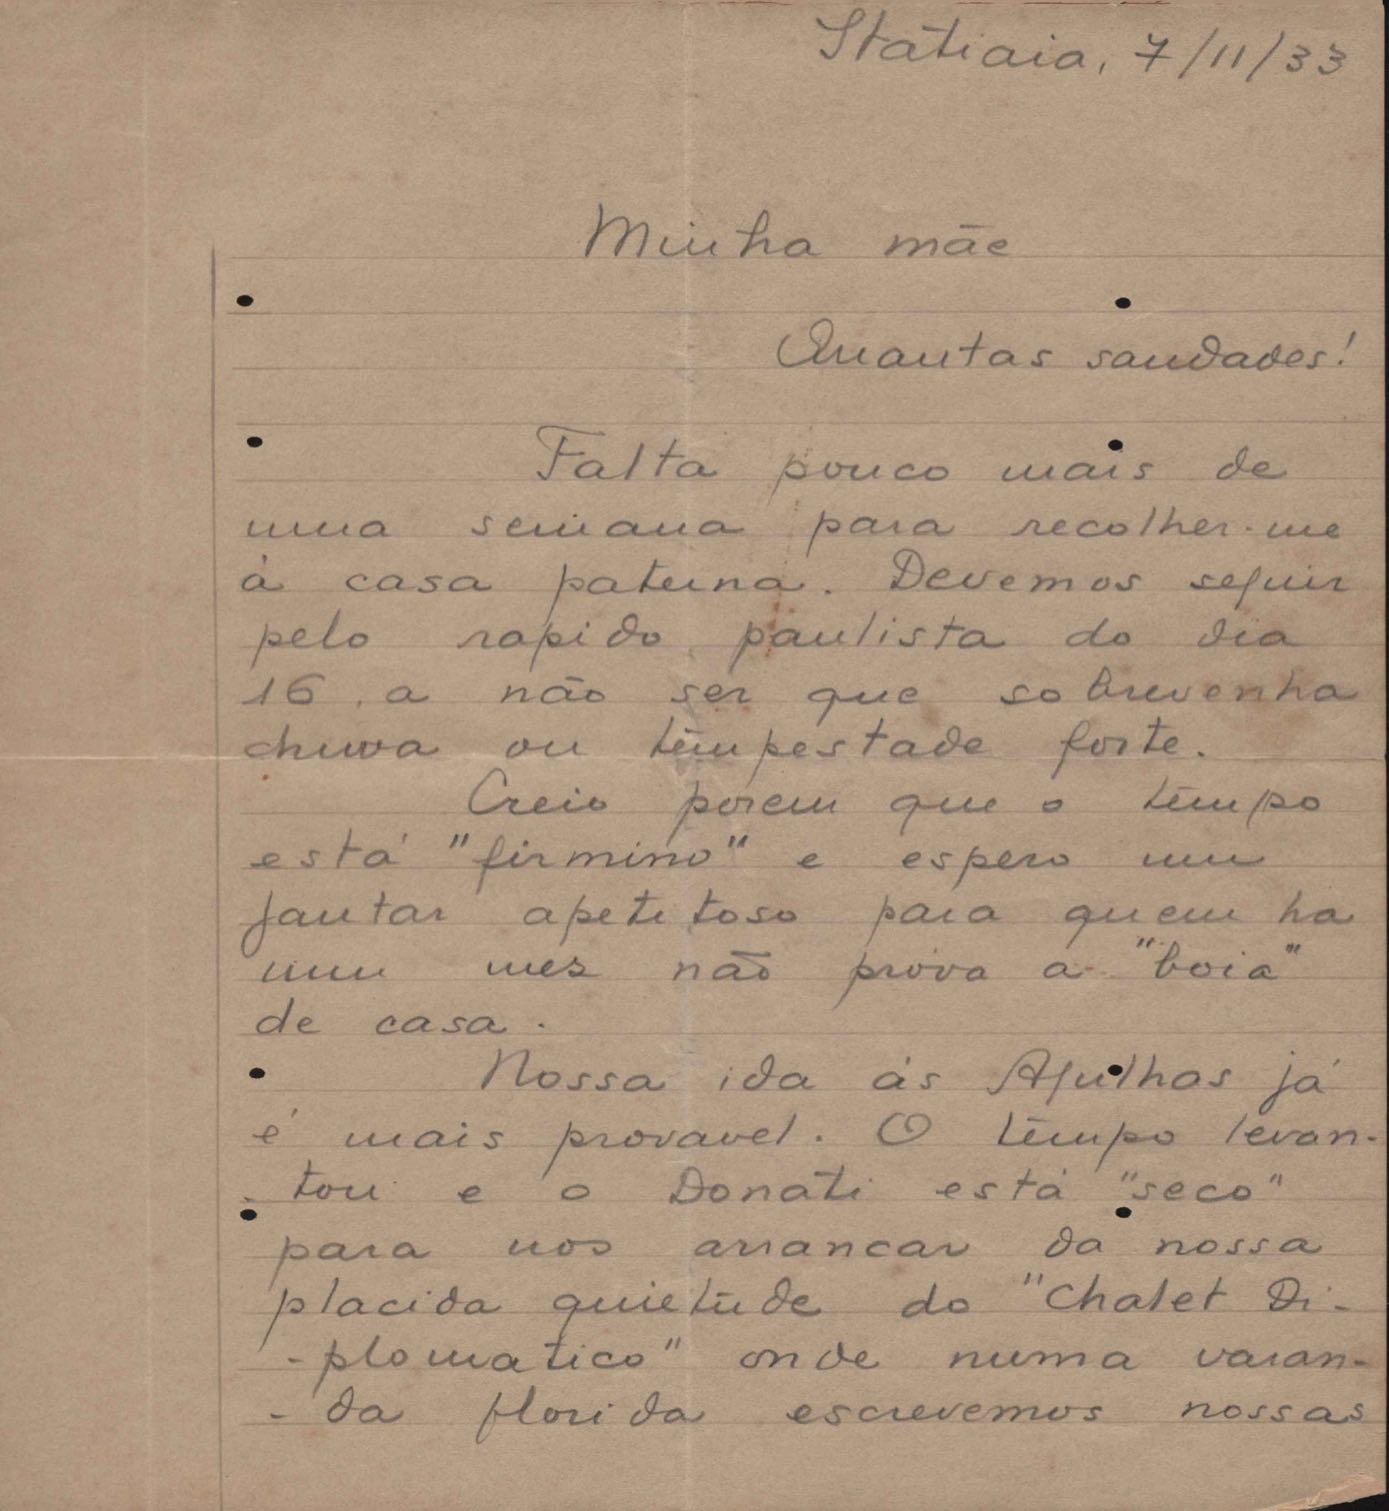 Itatiaia, 7/11/33
Minha mãe
Quantas saudades!
Falta pouco mais de
uma semana para recolher-me
à casa paterna. Devemos seguir
pelo rapido paulista do dia
16, a não ser que sobrevenha
chuva ou tempestade forte.
Creio porem que o tempo
está "firmino" e espero um
jantar apetitoso para quem ha
um mez não prova a "boia"
de casa.
Nossa ida ás Agulhas já
é mais provavel. O tempo levan-
-tou e o Donati está "seco"
para nos arrancar da nossa
placida quietude do "Chalet Di-
-plomatico" onde numa varan-
-da florida escrevemos nossas